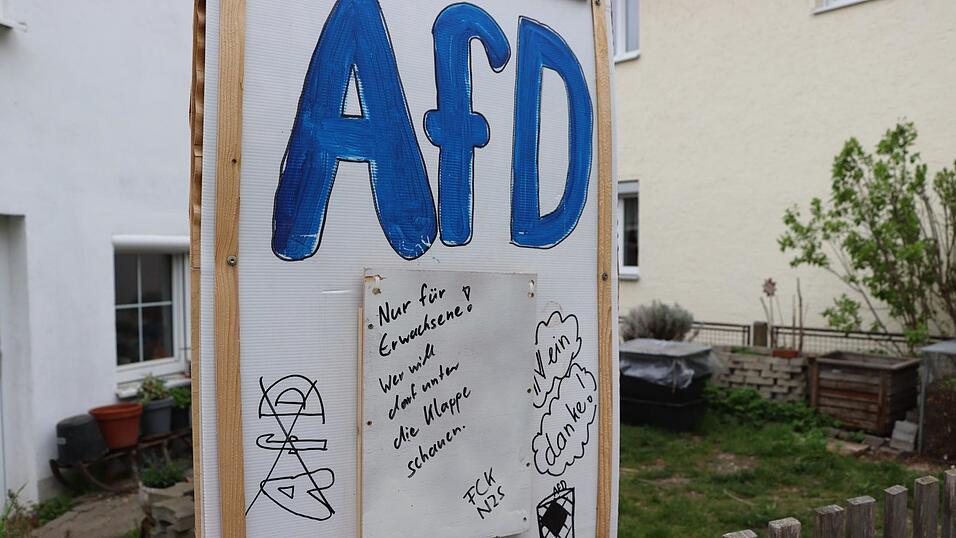 AfD
Nur für
Erwachsene!
Wer will
darf unter
die Klappe
schauen.
FCK
NZS
Nein
danke!
AfD
AFD